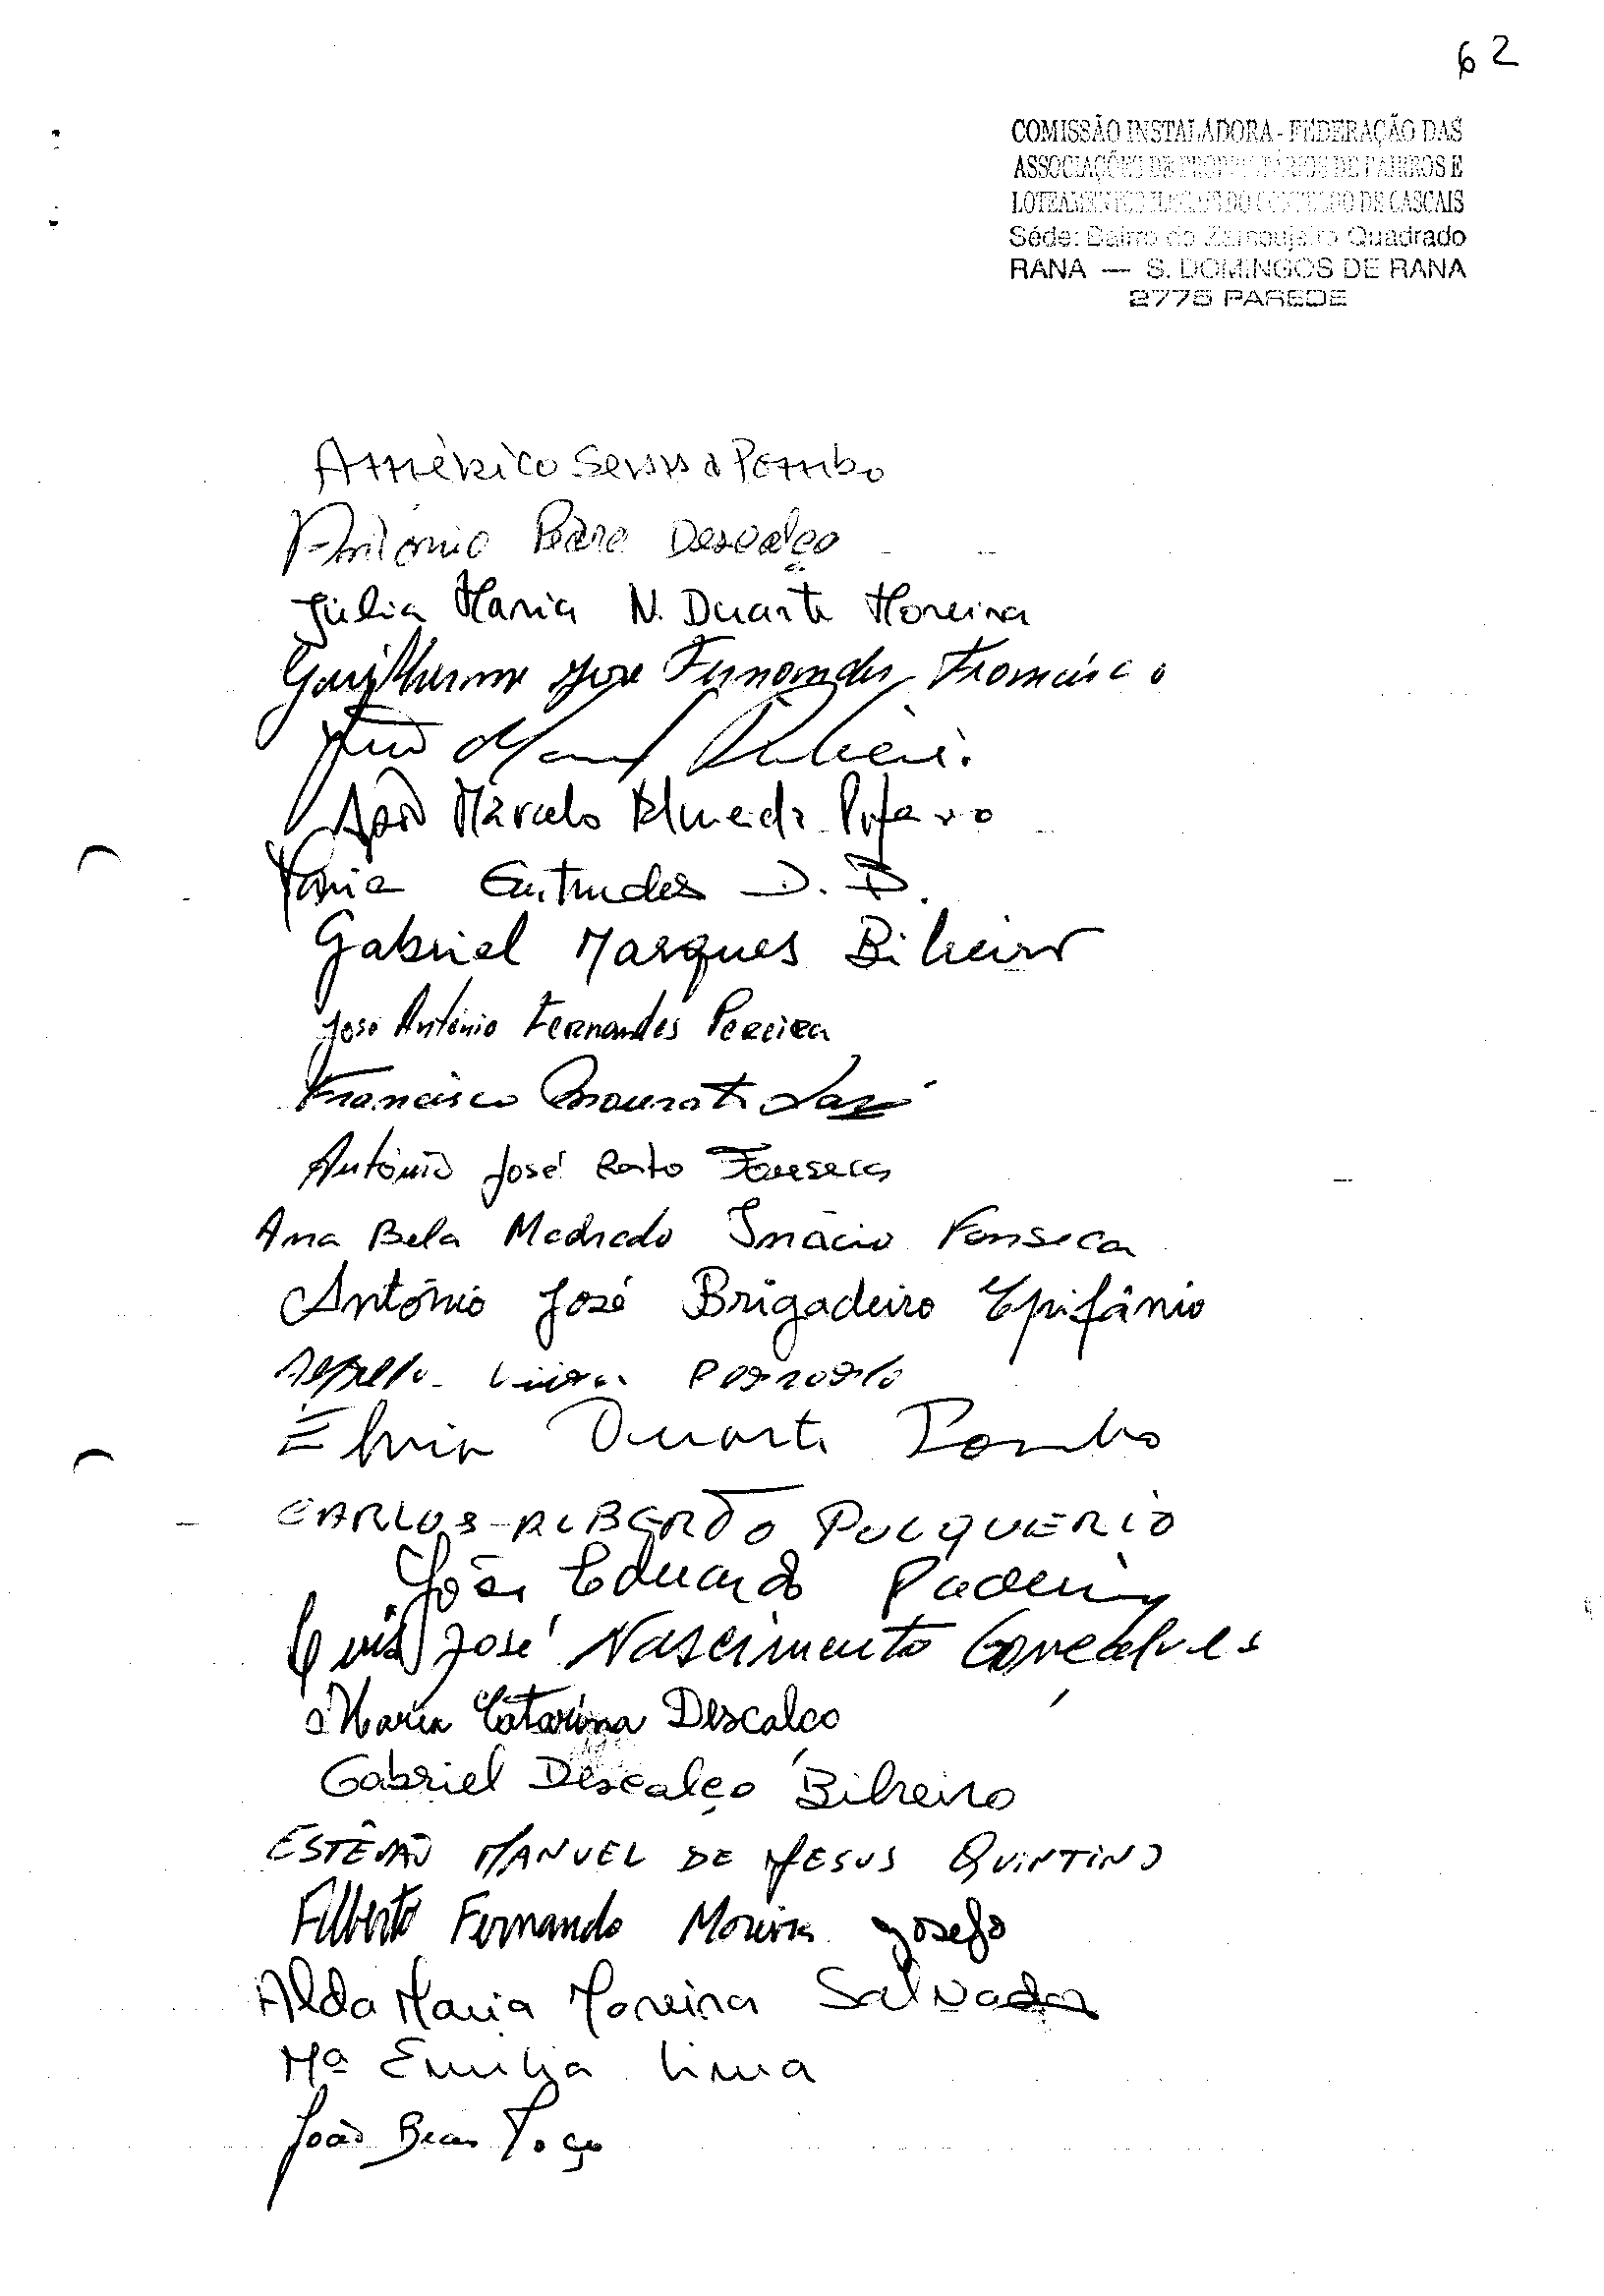 62
COMISSÃO INSTALADORA - FEDERAÇÃO DAS
ASSOCIAÇÕES DE PROPRIETÁRIOS DE BAIRROS E
LOTEAMENTOS ILEGAIS DO CONCELHO DE CASCAIS
Séde: Bairro do Zambujeiro Quadrado
RANA — S. DOMINGOS DE RANA
2775 PAREDE
Américo Pombo
António Descalço
Júlia Maria N. Duarte Moreira
Guilherme José Fernandes Francisco
João Manuel
João Marcelo Almeida
Maria Gertrudes D. B.
Gabriel Marques Bilheiro
José António Fernandes Pereira
Francisco
António José Rato Fonseca
Ana Bela Machado Inácio Fonseca
António José Brigadeiro Epifânio
Elvira Duarte Pombo
CARLOS-ALBERTO PULQUÉRIO
Eduardo
Luís José Nascimento Gonçalves
Maria Catarina Descalço
Gabriel Descalço Bilheiro
ESTÊVÃO MANUEL DE JESUS QUINTINO
Filberto Fernando Moreira Josefo
Alda Maria Moreira Salvador
Mª Emília Lima
João